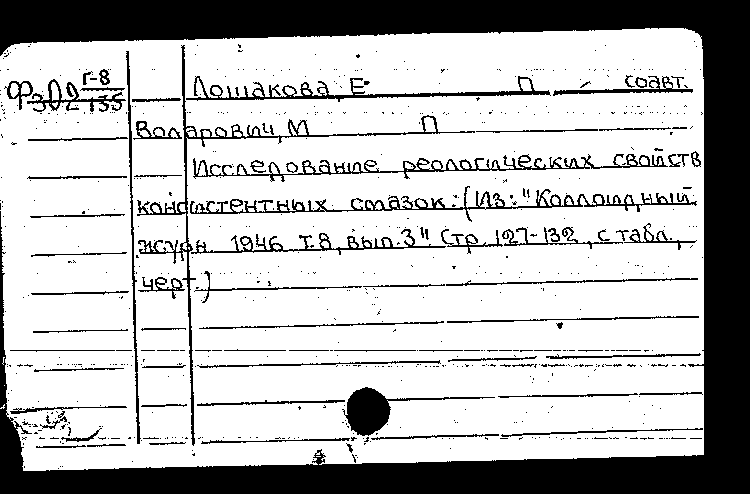 Ф302 Г-8/135 Лошакова, Е П , соавт.
Воларович, М П
Исследование реологических свойств
консистентных смазок. (Из: "Коллоидный
журн. 1946 т.8, вып. 3" Стр. 127-132, с табл.,
черт.)